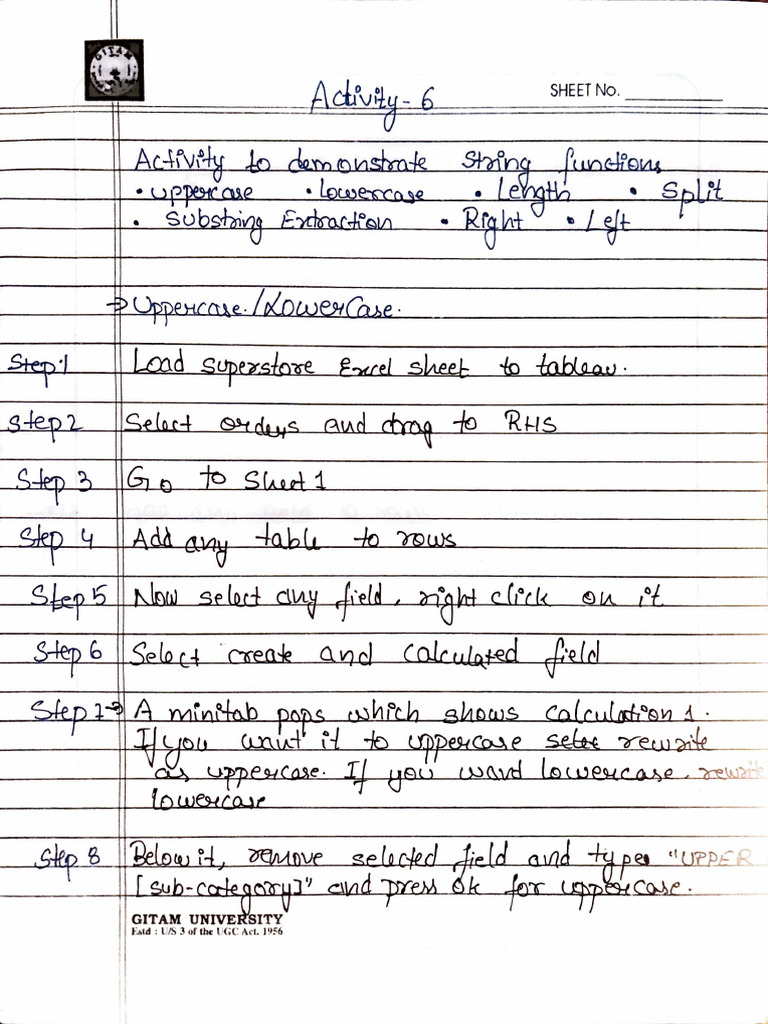 GITAM
Activity - 6
SHEET No.
Activity to demonstrate string functions
• uppercase • lowercase • Length • Split
• Substring Extraction • Right • Left
→ Uppercase. / LowerCase.
Step 1 Load superstore Excel sheet to tableau.
Step 2 Select orders and drag to RHS
Step 3 Go to Sheet 1
Step 4 Add any table to rows
Step 5 Now select any field, right click on it
Step 6 Select create and calculated field
Step 7→ A minitab pops which shows calculation 1.
If you want it to uppercase rewrite
as uppercase. If you want lowercase, rewrite
lowercase
Step 8 Below it, remove selected field and type "UPPER
[sub-category]" and press ok for uppercase.
GITAM UNIVERSITY
Estd : U/S 3 of the UGC Act. 1956